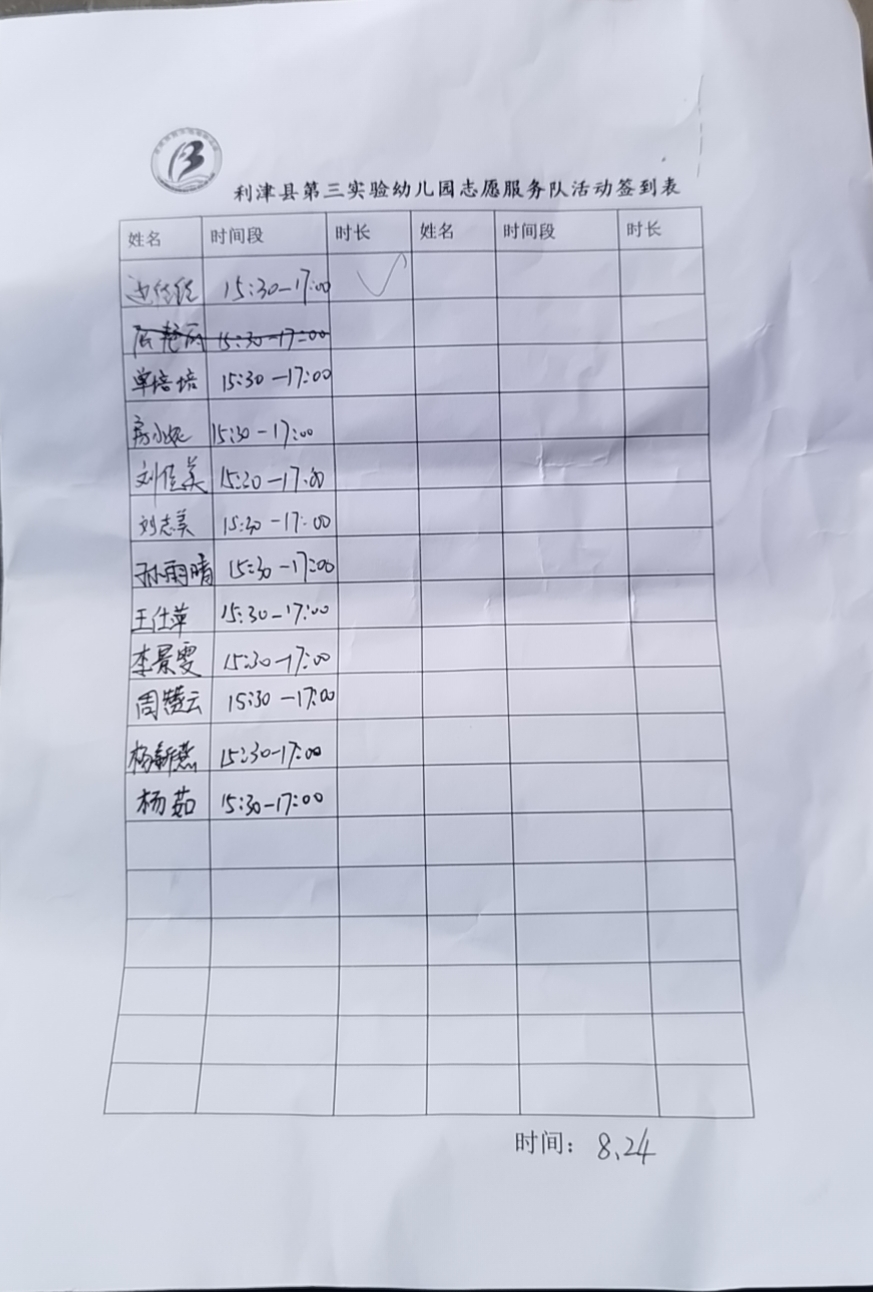 利津县第三实验幼儿园志愿服务队活动签到表
姓名 时间段 时长 姓名 时间段 时长
15:30-17:00
15:30-17:00
单培培 15:30-17:00
15:30-17:00
刘佳美 15:30-17:00
刘志美 15:30-17:00
孙雨晴 15:30-17:00
王仕萍 15:30-17:00
李景雯 15:30-17:00
周赞云 15:30-17:00
杨新燕 15:30-17:00
杨茹 15:30-17:00
时间：8.24